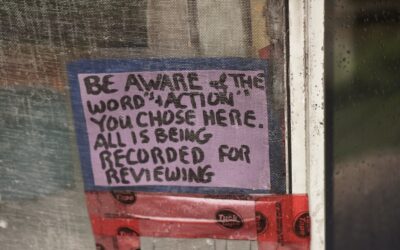 BE AWARE of THE
WORD "+ACTION"
YOU CHOSE HERE.
ALL IS BEING
RECORDED FOR
REVIEWING
Tuck